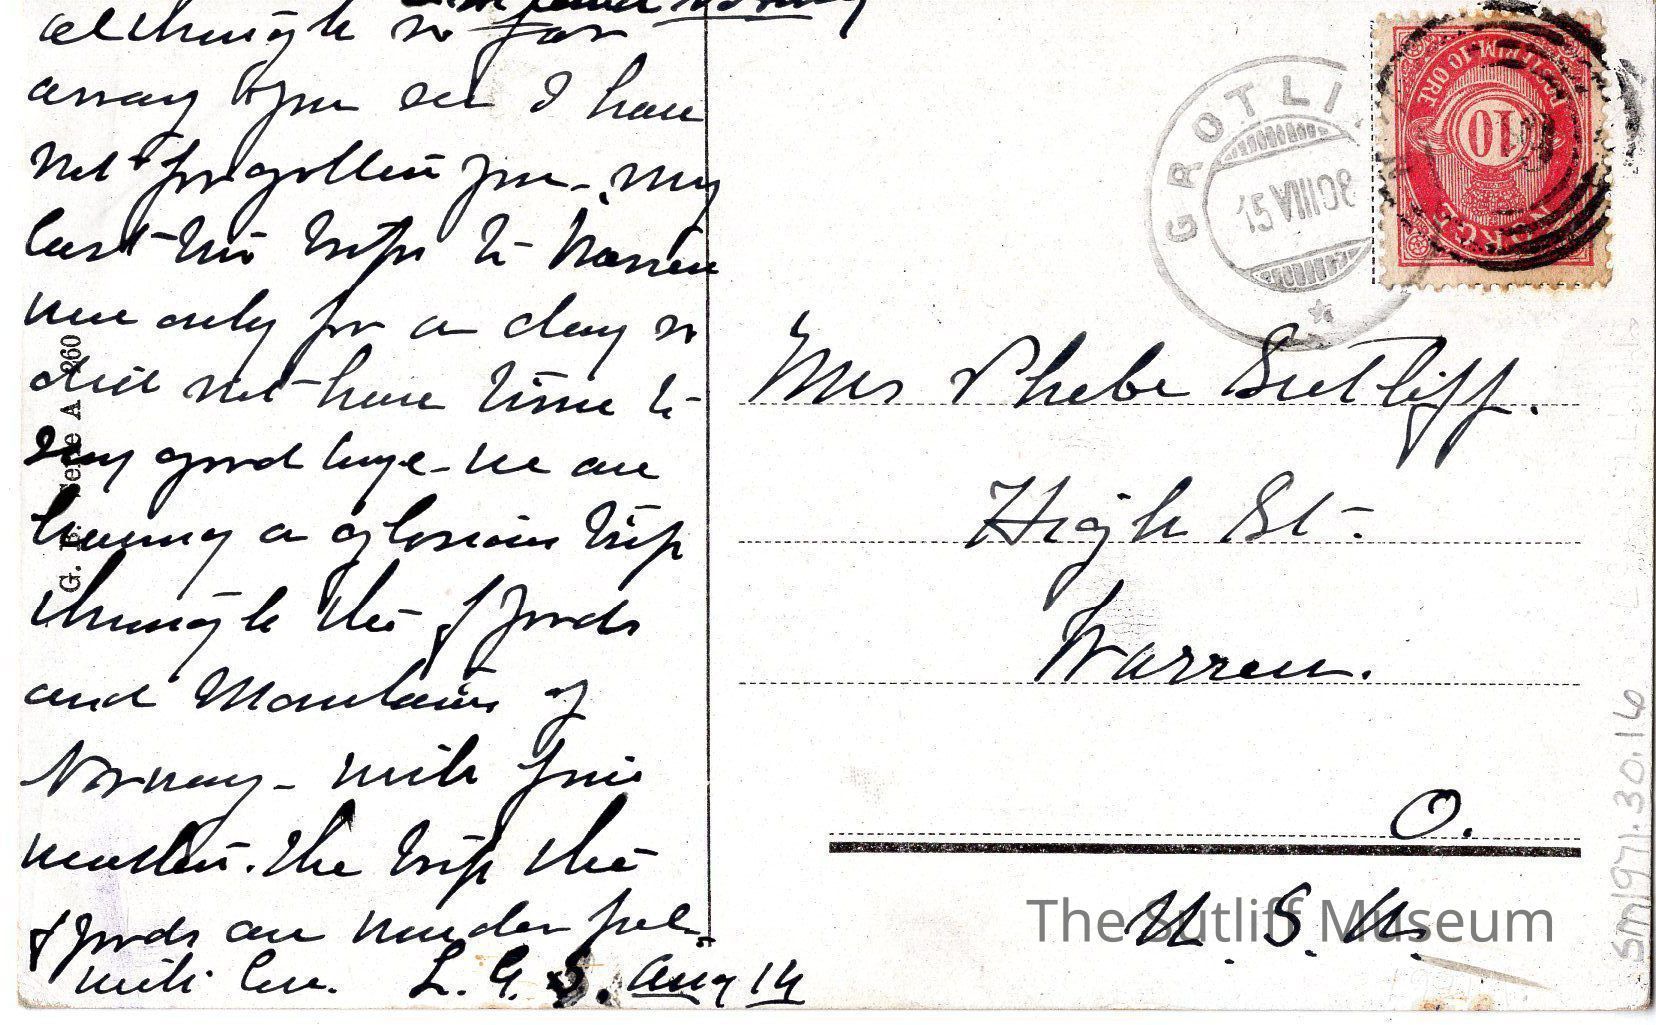 although so far
away you see I have
not forgotten you - my
last two trips to Warren
were only for a day so
did not have time to
say good bye - we are
having a glorious trip
through the fjords
and Mountains of
Norway - with fine
weather. The trip the
fjords are wonderful.
with love. L. G. S. Aug 14
G. Serie A 260
GROTLI
15 VIII 08
POSTFRIM. 10 ØRE
10
NORGE
Mrs Phebe Sutliff.
High St.
Warren.
O.
U. S. A.
The Sutliff Museum
SM1971.30.16